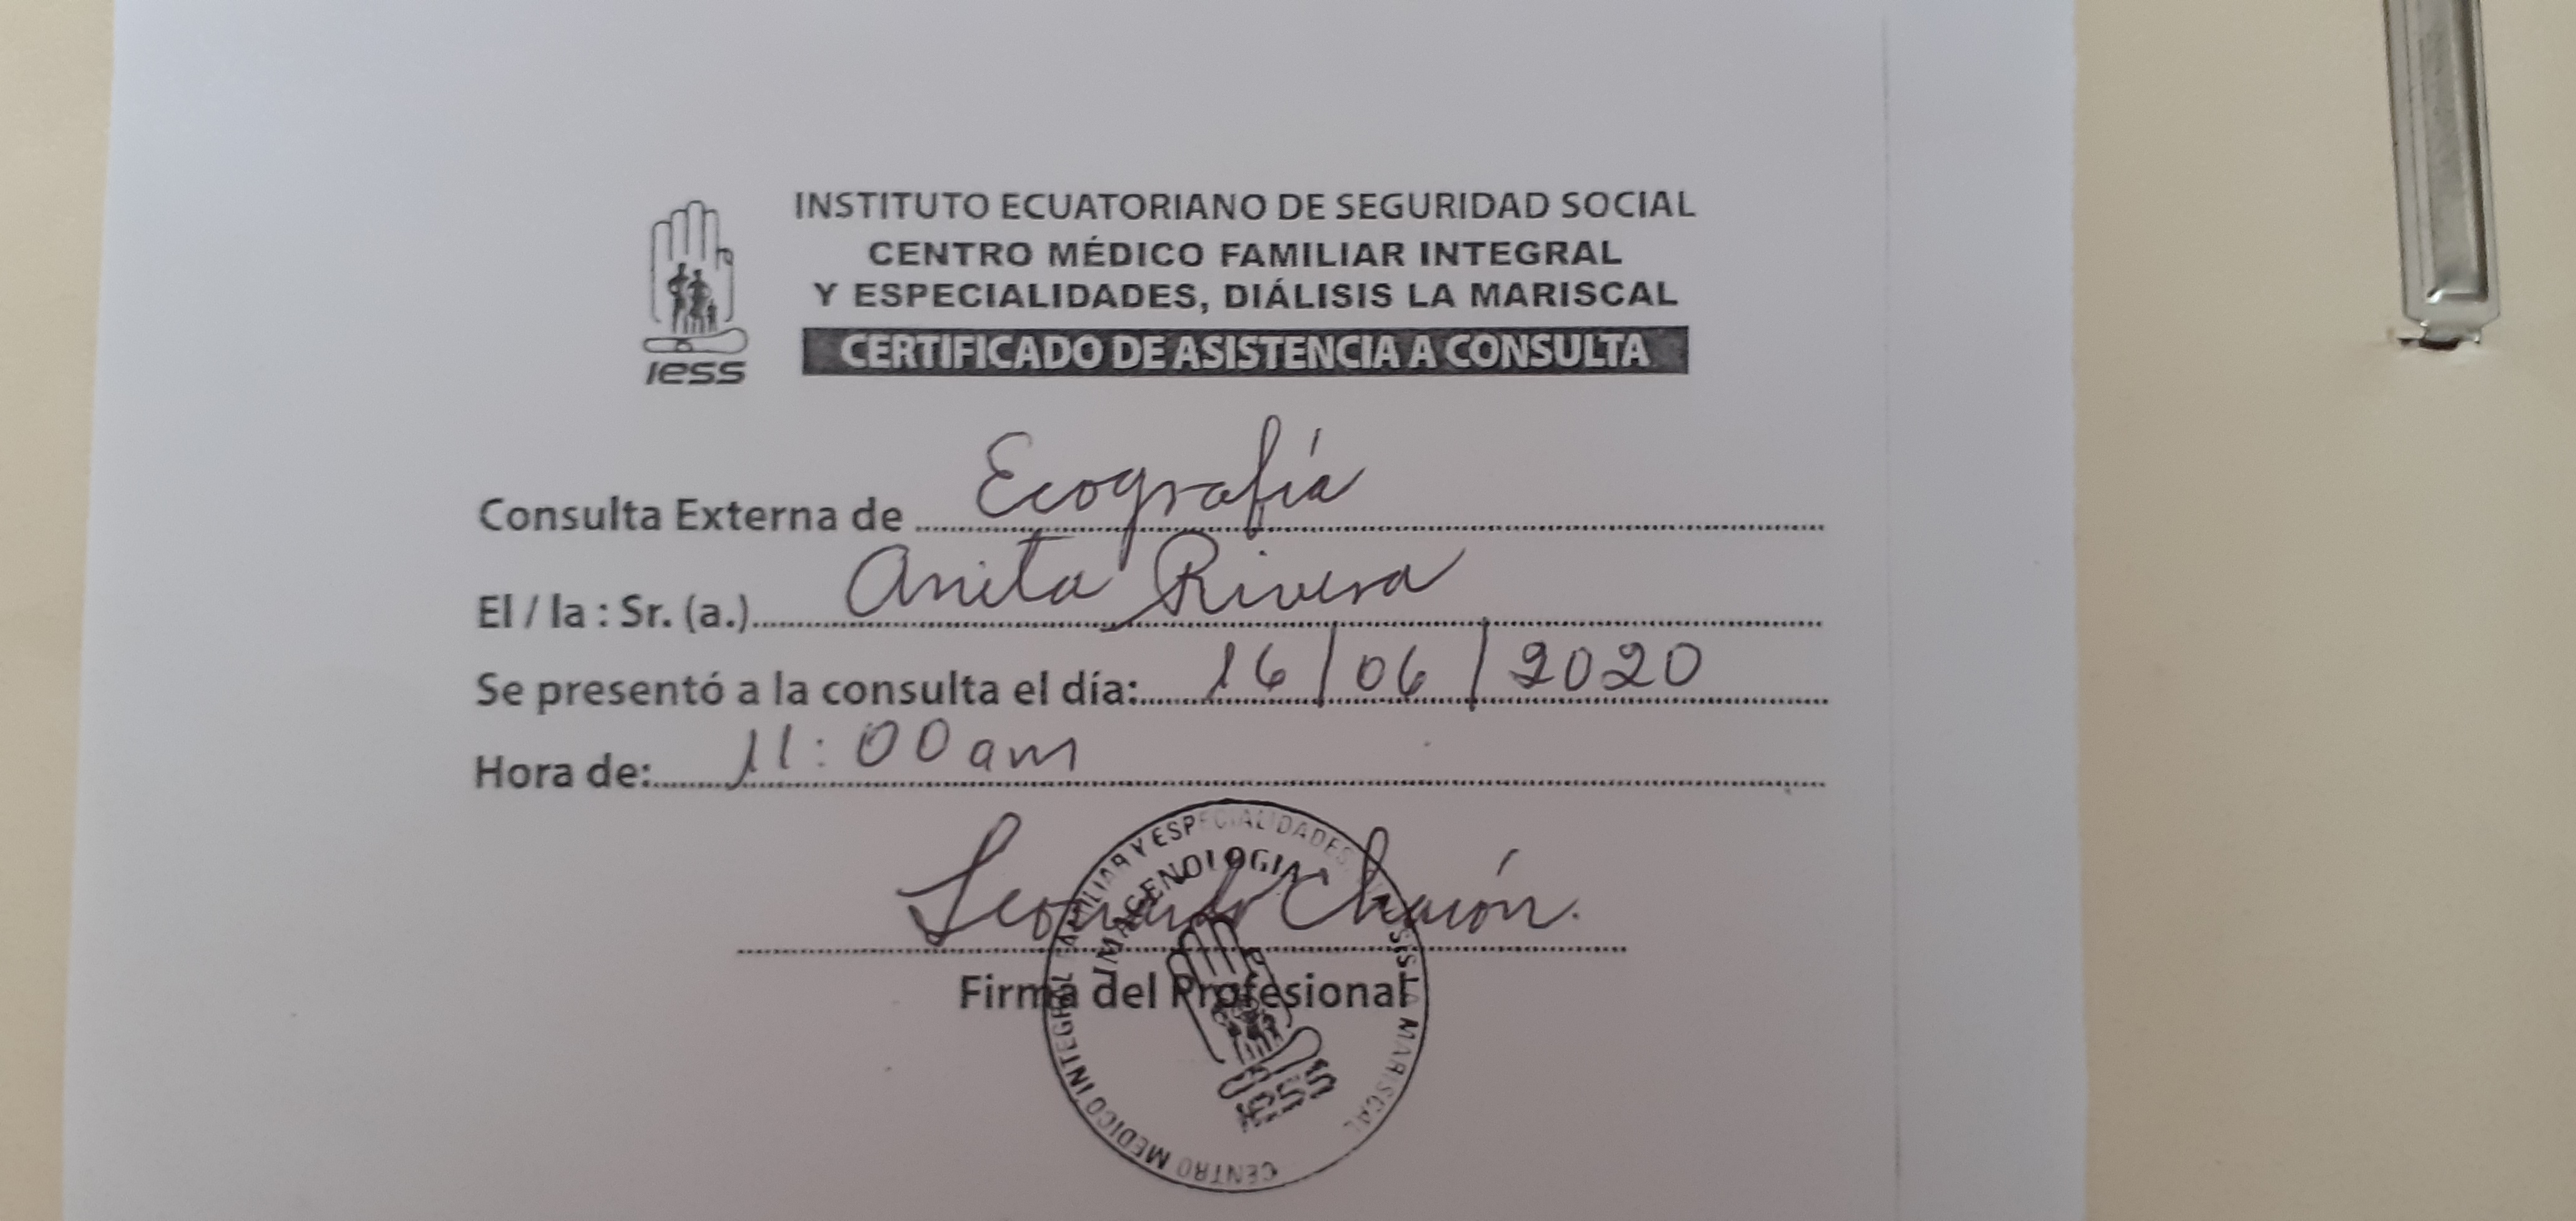 INSTITUTO ECUATORIANO DE SEGURIDAD SOCIAL
CENTRO MÉDICO FAMILIAR INTEGRAL
Y ESPECIALIDADES, DIÁLISIS LA MARISCAL
CERTIFICADO DE ASISTENCIA A CONSULTA
iess
Consulta Externa de Ecografía
El / la : Sr. (a.) Anita Rivera
Se presentó a la consulta el día: 16/06/2020
Hora de: 11:00 am
Leonardo Chacón.
Firma del Profesional
CENTRO MEDICO INTEGRAL FAMILIAR Y ESPECIALIDADES LA MARISCAL
IMAGENOLOGIA
IESS